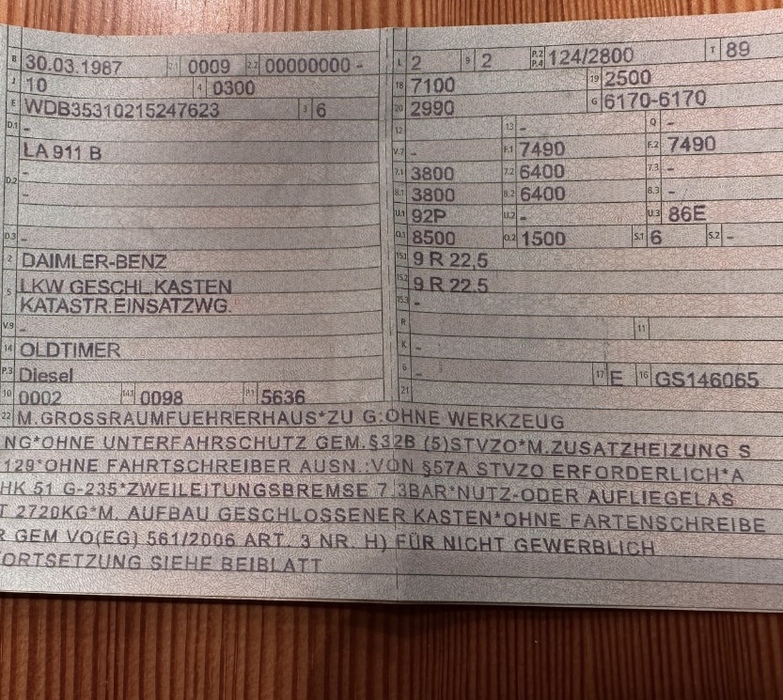 B 30.03.1987 2.1 0009 2.2 00000000 -
J 10 4 0300
E WDB35310215247623 3 6
D.1 -
LA 911 B
D.2 -
-
D.3 -
2 DAIMLER-BENZ
5 LKW GESCHL.KASTEN
KATASTR.EINSATZWG.
V.9 -
14 OLDTIMER
P.3 Diesel
10 0002 14.1 0098 P.1 5636
L 2 9 2 P.2 P.4 124/2800 T 89
18 7100 19 2500
20 2990 G 6170-6170
12 13 - Q -
V.7 - F.1 7490 F.2 7490
7.1 3800 7.2 6400 7.3 -
8.1 3800 8.2 6400 8.3 -
U.1 92P U.2 - U.3 86E
O.1 8500 O.2 1500 S.1 6 S.2 -
15.1 9 R 22,5
15.2 9 R 22.5
15.3 -
R 11
K -
6 - 17 E 16 GS146065
21
22 M.GROSSRAUMFUEHRERHAUS*ZU G:OHNE WERKZEUG
NG*OHNE UNTERFAHRSCHUTZ GEM.§32B (5)STVZO*M.ZUSATZHEIZUNG S
129*OHNE FAHRTSCHREIBER AUSN.:VON §57A STVZO ERFORDERLICH*A
HK 51 G-235*ZWEILEITUNGSBREMSE 7,3BAR*NUTZ-ODER AUFLIEGELAS
T 2720KG*M. AUFBAU GESCHLOSSENER KASTEN*OHNE FARTENSCHREIBE
R GEM VO(EG) 561/2006 ART. 3 NR. H) FÜR NICHT GEWERBLICH
ORTSETZUNG SIEHE BEIBLATT